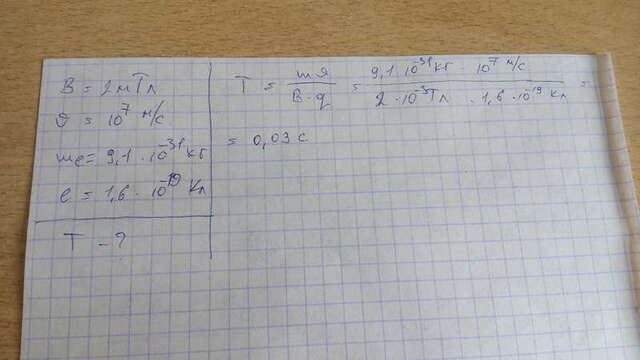 B = 2мТл
υ = 10⁷ м/с
me = 9,1 · 10⁻³¹ кг
e = 1,6 · 10⁻¹⁹ Кл
T - ?
T = mυ / B · q = 9,1 · 10⁻³¹ кг · 10⁷ м/с / 2 · 10⁻³ Тл · 1,6 · 10⁻¹⁹ Кл =
= 0,03 с